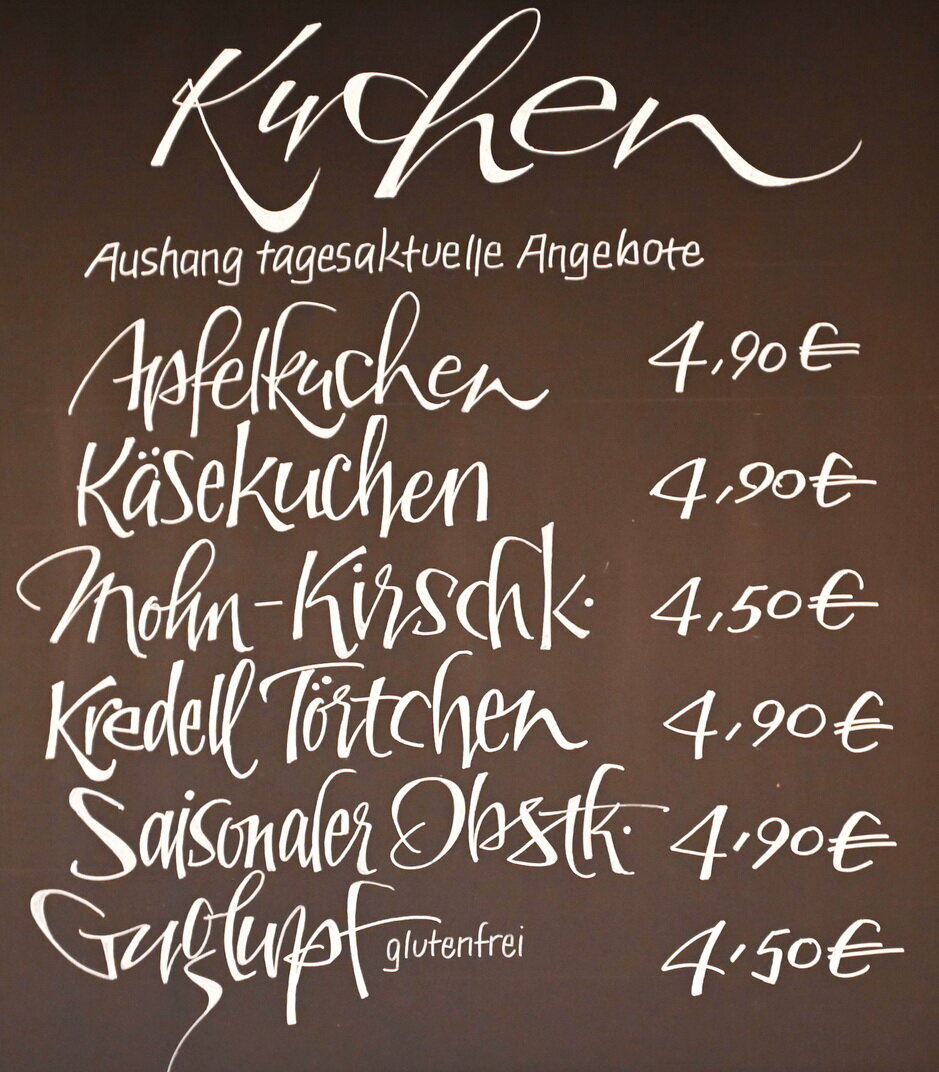 Kuchen
Aushang tagesaktuelle Angebote
Apfelkuchen 4,90€
Käsekuchen 4,90€
Mohn-Kirschk. 4,50€
Kredell Törtchen 4,90€
Saisonaler Obstk. 4,90€
Guglupf glutenfrei 4,50€